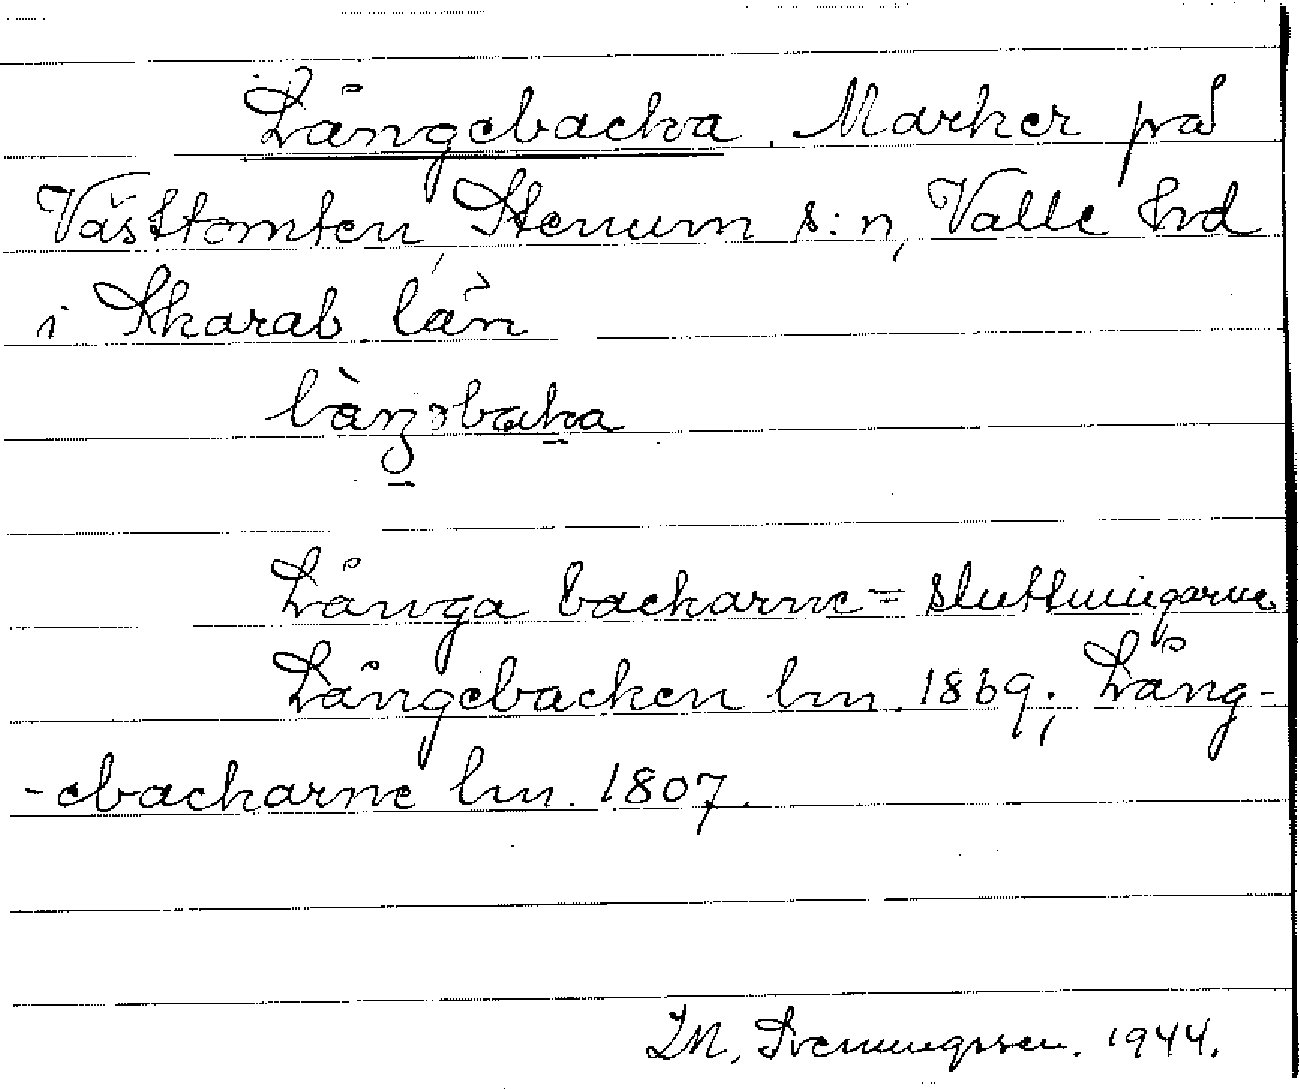 Långebacka. Marker på
Västtomten, Stenum s:n, Valle hd
i Skarab län
làŋəbaka
Långa backarne = sluttningarne
Långebacken lm. 1869; Lång-
-ebackarne lm. 1807.
I M, Svenungsson. 1944.